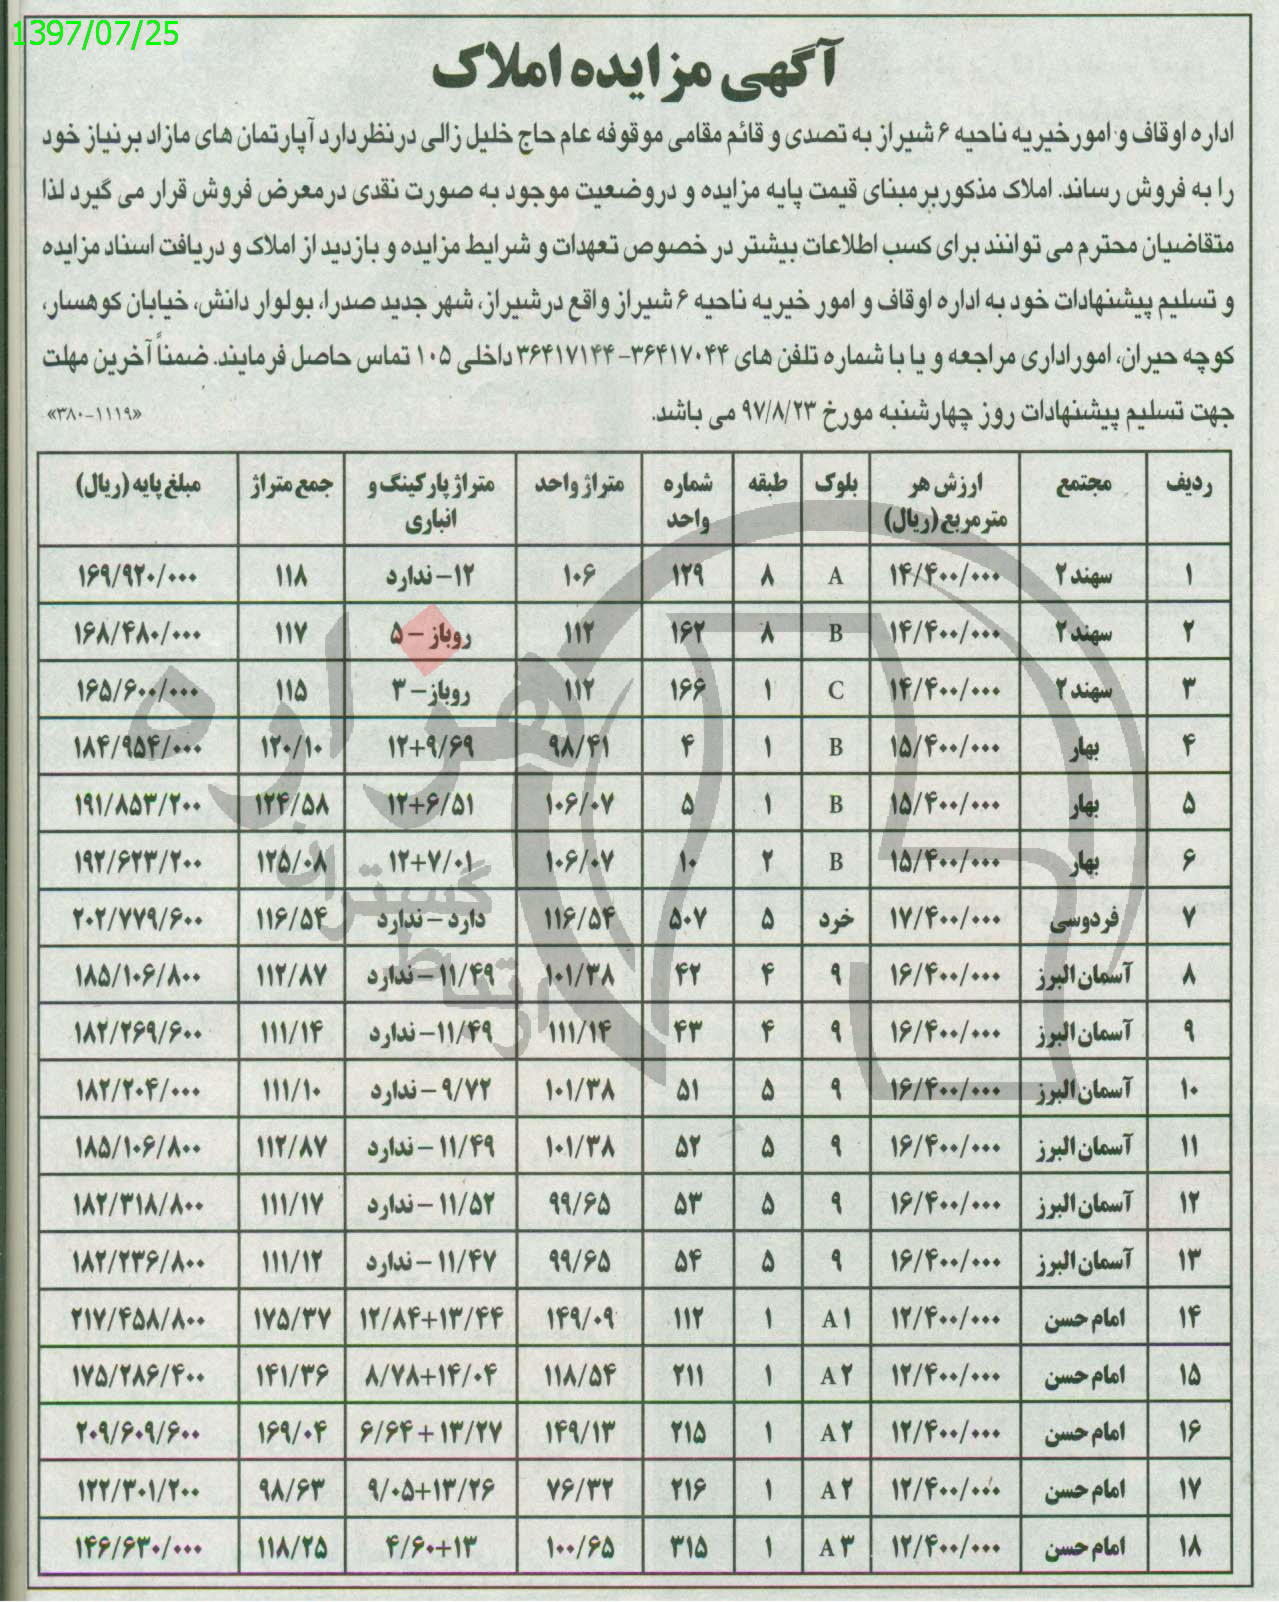 1397/07/25
آگهی مزایده املاک
اداره اوقاف و امورخیریه ناحیه ۶ شیراز به تصدی و قائم مقامی موقوفه عام حاج خلیل زالی درنظردارد آپارتمان های مازاد برنیاز خود
را به فروش رساند. املاک مذکوربرمبنای قیمت پایه مزایده و دروضعیت موجود به صورت نقدی درمعرض فروش قرار می گیرد لذا
متقاضیان محترم می توانند برای کسب اطلاعات بیشتر در خصوص تعهدات و شرایط مزایده و بازدید از املاک و دریافت اسناد مزایده
و تسلیم پیشنهادات خود به اداره اوقاف و امور خیریه ناحیه ۶ شیراز واقع درشیراز، شهر جدید صدرا، بولوار دانش، خیابان کوهسار،
کوچه حیران، اموراداری مراجعه و یا با شماره تلفن های ۳۶۴۱۷۰۴۴-۳۶۴۱۷۱۴۴ داخلی ۱۰۵ تماس حاصل فرمایند. ضمناً آخرین مهلت
جهت تسلیم پیشنهادات روز چهارشنبه مورخ ۹۷/۸/۲۳ می باشد. «۳۸۰-۱۱۱۹»
ردیف مجتمع ارزش هر مترمربع (ریال) بلوک طبقه شماره واحد متراژ واحد متراژ پارکینگ و انباری جمع متراژ مبلغ پایه (ریال)
۱ سهند ۲ ۱۴/۴۰۰/۰۰۰ A ۸ ۱۲۹ ۱۰۶ ۱۲- ندارد ۱۱۸ ۱۶۹/۹۲۰/۰۰۰
۲ سهند ۲ ۱۴/۴۰۰/۰۰۰ B ۸ ۱۶۲ ۱۱۲ روباز - ۵ ۱۱۷ ۱۶۸/۴۸۰/۰۰۰
۳ سهند ۲ ۱۴/۴۰۰/۰۰۰ C ۱ ۱۶۶ ۱۱۲ روباز- ۳ ۱۱۵ ۱۶۵/۶۰۰/۰۰۰
۴ بهار ۱۵/۴۰۰/۰۰۰ B ۱ ۴ ۹۸/۴۱ ۱۲+۹/۶۹ ۱۲۰/۱۰ ۱۸۴/۹۵۴/۰۰۰
۵ بهار ۱۵/۴۰۰/۰۰۰ B ۱ ۵ ۱۰۶/۰۷ ۱۲+۶/۵۱ ۱۲۴/۵۸ ۱۹۱/۸۵۳/۲۰۰
۶ بهار ۱۵/۴۰۰/۰۰۰ B ۲ ۱۰ ۱۰۶/۰۷ ۱۲+۷/۰۱ ۱۲۵/۰۸ ۱۹۲/۶۲۳/۲۰۰
۷ فردوسی ۱۷/۴۰۰/۰۰۰ خرد ۵ ۵۰۷ ۱۱۶/۵۴ دارد - ندارد ۱۱۶/۵۴ ۲۰۲/۷۷۹/۶۰۰
۸ آسمان البرز ۱۶/۴۰۰/۰۰۰ ۹ ۴ ۴۲ ۱۰۱/۳۸ ۱۱/۴۹ - ندارد ۱۱۲/۸۷ ۱۸۵/۱۰۶/۸۰۰
۹ آسمان البرز ۱۶/۴۰۰/۰۰۰ ۹ ۴ ۴۳ ۱۱۱/۱۴ ۱۱/۴۹- ندارد ۱۱۱/۱۴ ۱۸۲/۲۶۹/۶۰۰
۱۰ آسمان البرز ۱۶/۴۰۰/۰۰۰ ۹ ۵ ۵۱ ۱۰۱/۳۸ ۹/۷۲ - ندارد ۱۱۱/۱۰ ۱۸۲/۲۰۴/۰۰۰
۱۱ آسمان البرز ۱۶/۴۰۰/۰۰۰ ۹ ۵ ۵۲ ۱۰۱/۳۸ ۱۱/۴۹ - ندارد ۱۱۲/۸۷ ۱۸۵/۱۰۶/۸۰۰
۱۲ آسمان البرز ۱۶/۴۰۰/۰۰۰ ۹ ۵ ۵۳ ۹۹/۶۵ ۱۱/۵۲ - ندارد ۱۱۱/۱۷ ۱۸۲/۳۱۸/۸۰۰
۱۳ آسمان البرز ۱۶/۴۰۰/۰۰۰ ۹ ۵ ۵۴ ۹۹/۶۵ ۱۱/۴۷ - ندارد ۱۱۱/۱۲ ۱۸۲/۲۳۶/۸۰۰
۱۴ امام حسن ۱۲/۴۰۰/۰۰۰ A۱ ۱ ۱۱۲ ۱۴۹/۰۹ ۱۲/۸۴+۱۳/۴۴ ۱۷۵/۳۷ ۲۱۷/۴۵۸/۸۰۰
۱۵ امام حسن ۱۲/۴۰۰/۰۰۰ A۲ ۱ ۲۱۱ ۱۱۸/۵۴ ۸/۷۸+۱۴/۰۴ ۱۴۱/۳۶ ۱۷۵/۲۸۶/۴۰۰
۱۶ امام حسن ۱۲/۴۰۰/۰۰۰ A۲ ۱ ۲۱۵ ۱۴۹/۱۳ ۶/۶۴ + ۱۳/۲۷ ۱۶۹/۰۴ ۲۰۹/۶۰۹/۶۰۰
۱۷ امام حسن ۱۲/۴۰۰/۰۰۰ A۲ ۱ ۲۱۶ ۷۶/۳۲ ۹/۰۵+۱۳/۲۶ ۹۸/۶۳ ۱۲۲/۳۰۱/۲۰۰
۱۸ امام حسن ۱۲/۴۰۰/۰۰۰ A۳ ۱ ۳۱۵ ۱۰۰/۶۵ ۴/۶۰+۱۳ ۱۱۸/۲۵ ۱۴۶/۶۳۰/۰۰۰
هزاره
گستران
ارتباط